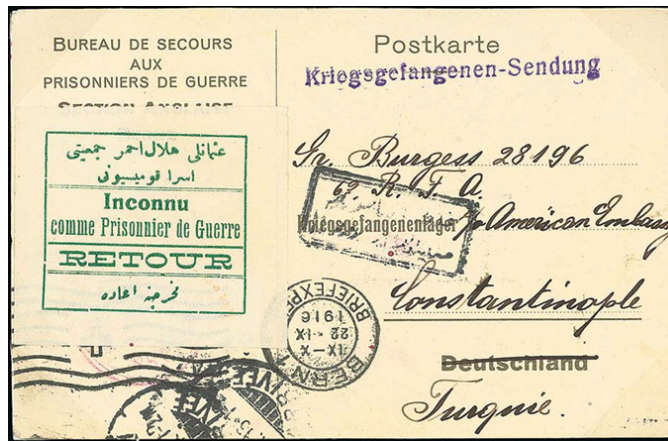 BUREAU DE SECOURS
AUX
PRISONNIERS DE GUERRE
SECTION ANGLAISE
عثمانلی هلال احمر جمعیتی
اسرا قومیسیونی
Inconnu
comme Prisonnier de Guerre
RETOUR
مخرجنه اعاده
Postkarte
Kriegsgefangenen-Sendung
Gr. Burgess 28196
63 R. F. A.
Kriegsgefangenenlager
c/o American Embassy
Constantinople
Deutschland
Turquie.
BERN 1
IX-X
22.IX
1916
BRIEFEXP